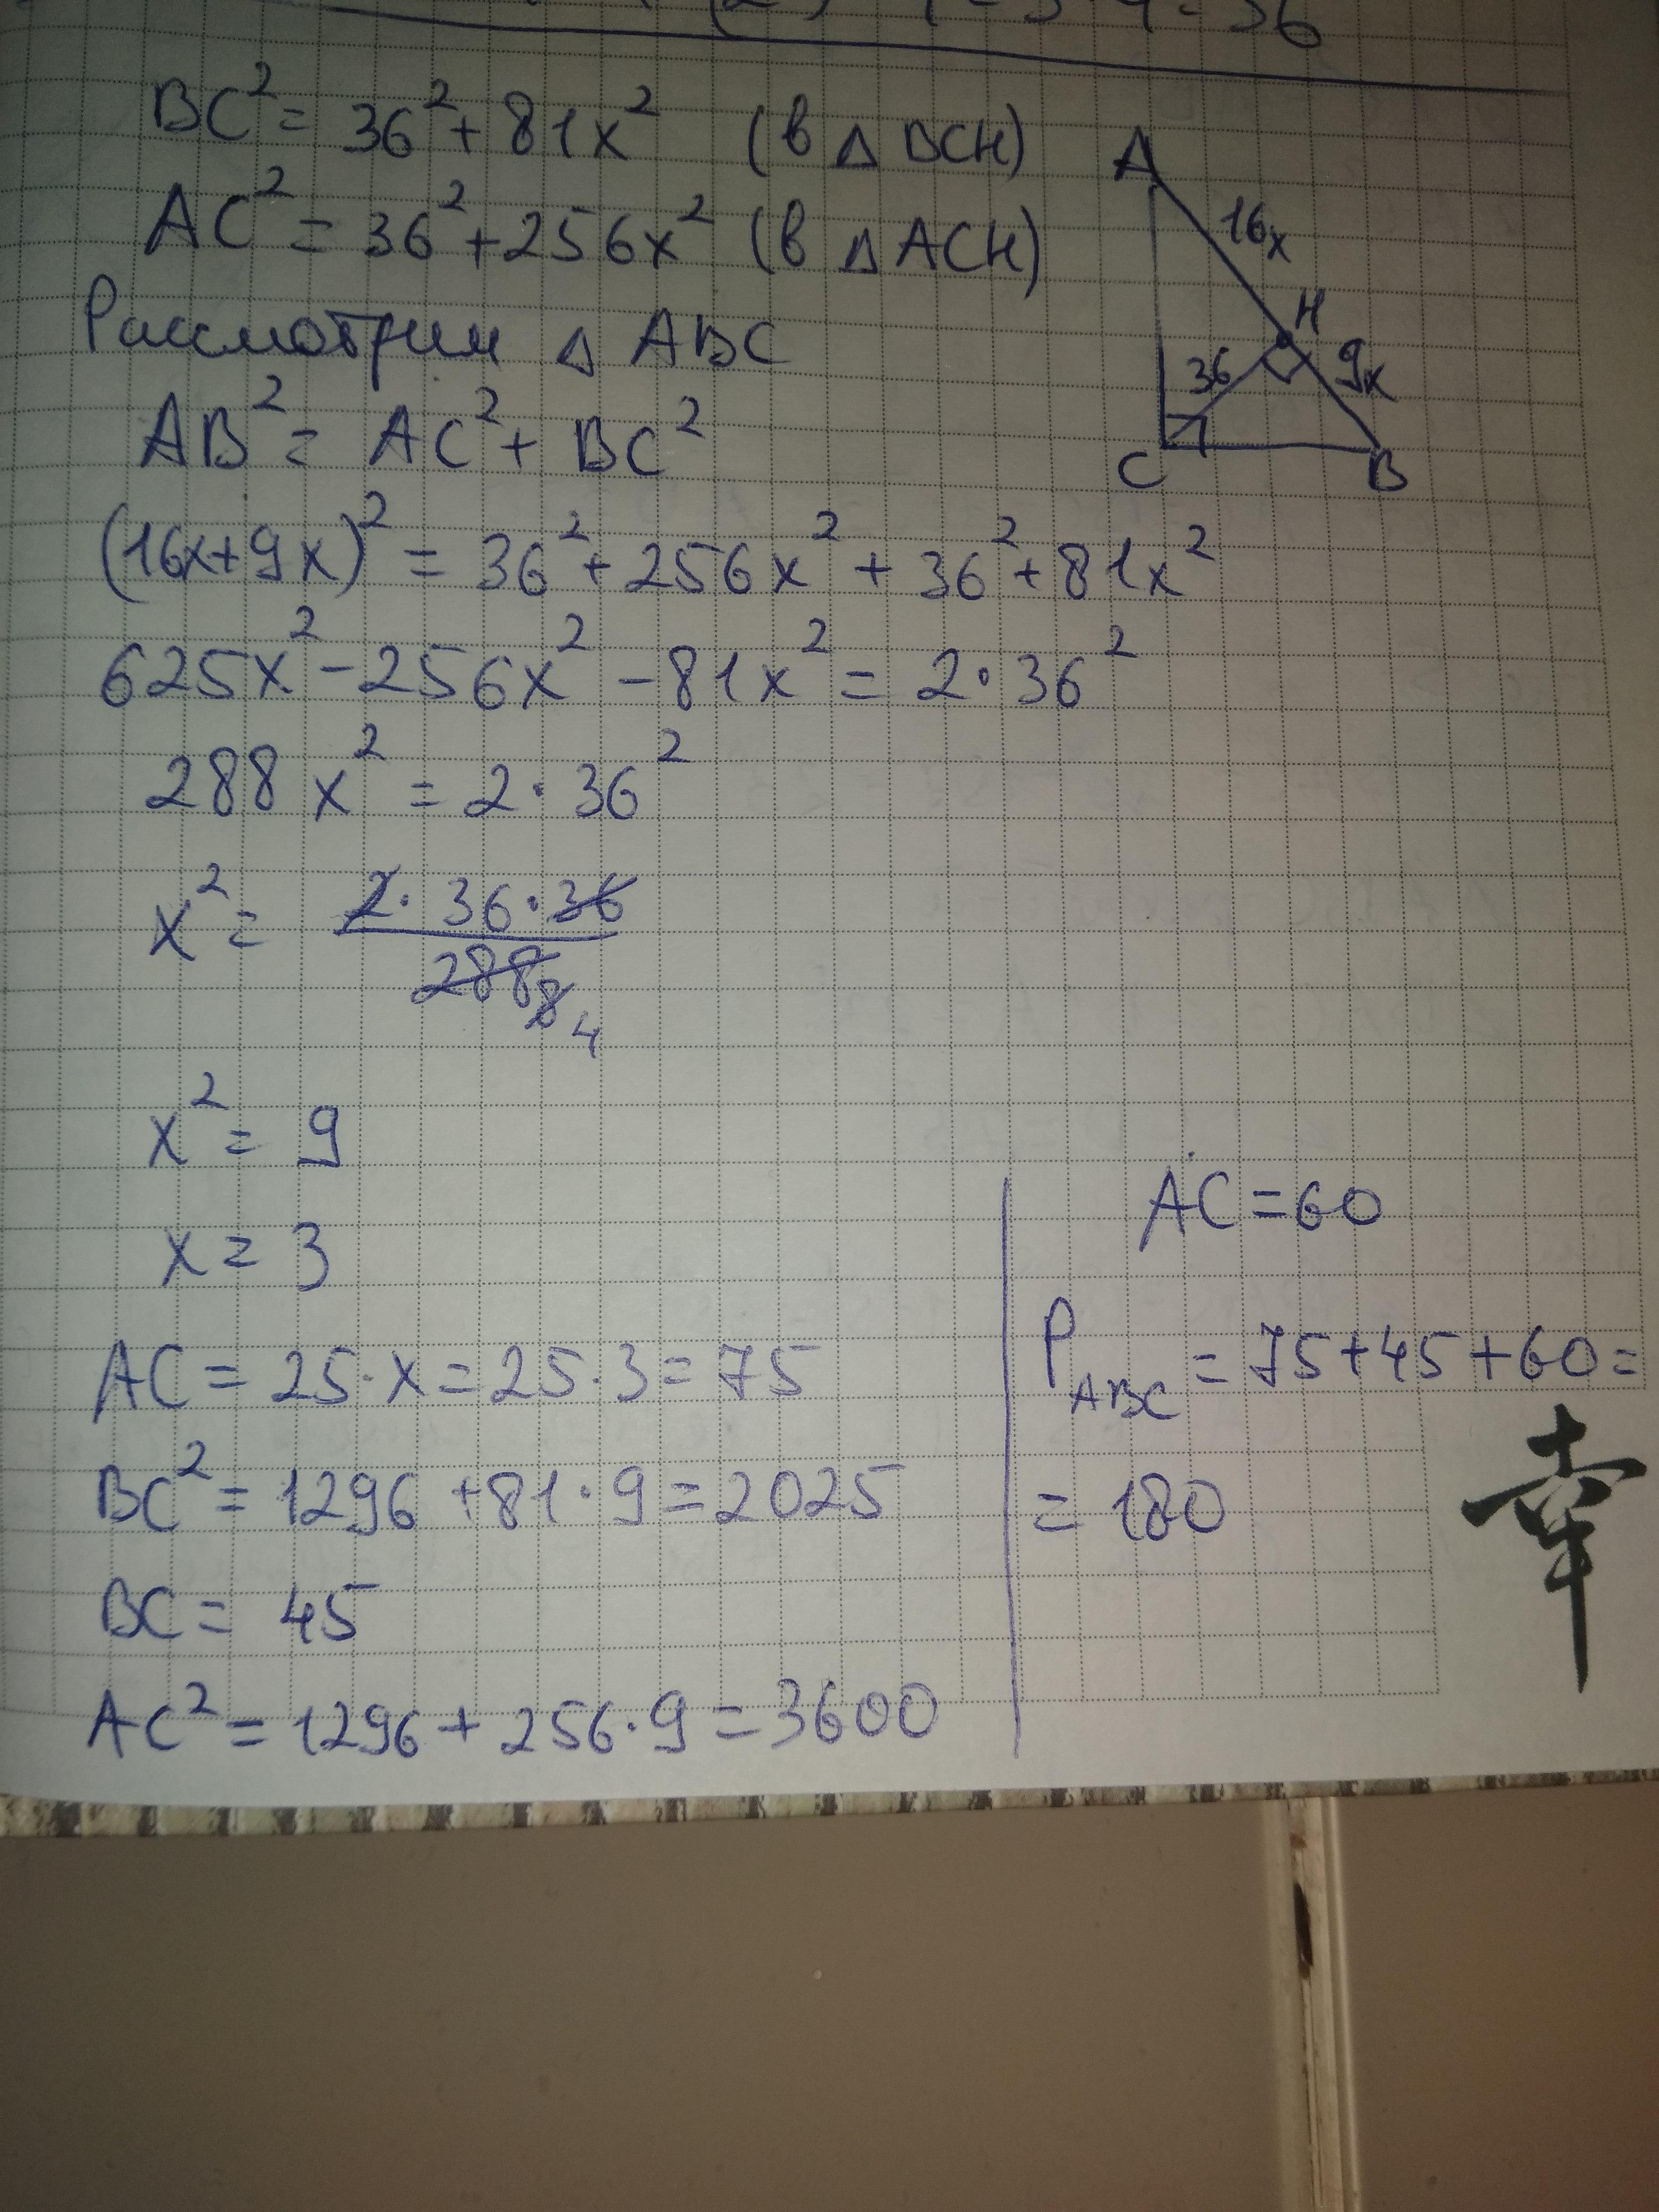 = 3·4 = 36
BC² = 36² + 81x² (в △ BCH)
AC² = 36² + 256x² (в △ ACH)
A
16x
H
36
9x
C
B
Рассмотрим △ ABC
AB² = AC² + BC²
(16x+9x)² = 36² + 256x² + 36² + 81x²
625x² - 256x² - 81x² = 2·36²
288x² = 2·36²
x² = 2·36·36 / 288 8 4
x² = 9
x = 3
AC = 25·x = 25·3 = 75
BC² = 1296 + 81·9 = 2025
BC = 45
AC² = 1296 + 256·9 = 3600
AC = 60
P ABC = 75 + 45 + 60 =
= 180